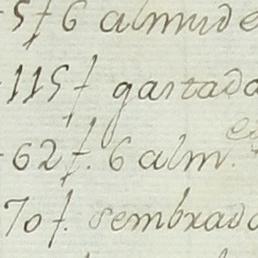 5f 6 almude
115f gastada
62f. 6 alm.
70f. sembrado